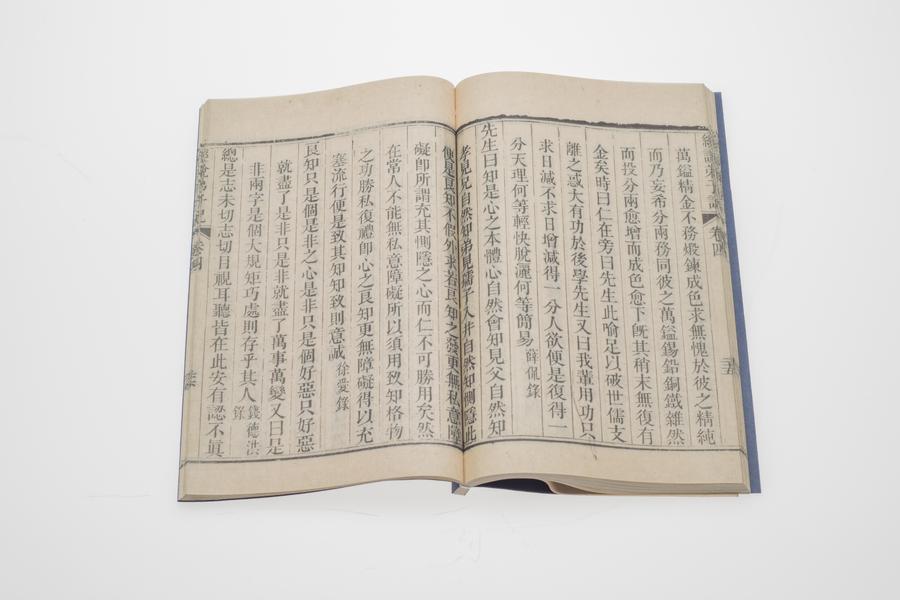 卷四
萬鎰精金不務煅鍊成色求無愧於彼之精純
而乃妄希分兩務同彼之萬鎰錫鉛銅鐵雜然
而投分兩愈增而成色愈下旣其稍末無復有
金矣時曰仁在旁曰先生此喻足以破世儒支
離之惑大有功於後學先生又曰我輩用功只
求日減不求日增減得一分人欲便是復得一
分天理何等輕快脫灑何等簡易 薛侃錄
先生曰知是心之本體心自然會知見父自然知
孝見兄自然知弟見孺子入井自然知惻隱此
便是良知不假外求若良知之發更無私意障
礙卽所謂充其惻隱之心而仁不可勝用矣然
在常人不能無私意障礙所以須用致知格物
之功勝私復禮卽心之良知更無障礙得以充
塞流行便是致其知知致則意誠 徐愛錄
良知只是個是非之心是非只是個好惡只好惡
就盡了是非只是非就盡了萬事萬變又曰是
非兩字是個大規矩巧處則存乎其人 錢德洪錄
總是志未切志切目視耳聽皆在此安有認不眞
卷四